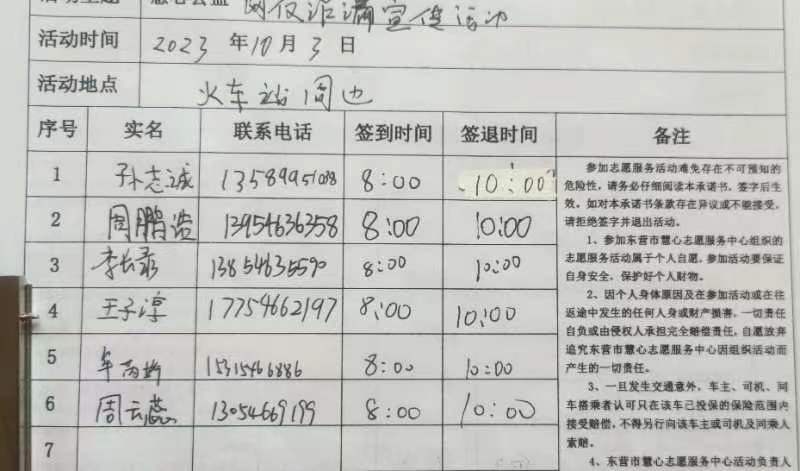 活动时间 2023 年10月3日
活动地点 火车站周边
序号 实名 联系电话 签到时间 签退时间 备注
1 孙志诚 8:00 10:00
2 周鹏浩 13954636358 8:00 10:00
3 13854635590 8:00 10:00
4 王子淳 17754662197 8:00 10:00
5 15315466886 8:00 10:00
6 周云蕊 13054669199 8:00 10:00
7
参加志愿服务活动难免存在不可预知的
危险性，请务必仔细阅读本承诺书，签字后生
效。如对本承诺书条款存在异议或不能接受，
请拒绝签字并退出活动。
1、参加东营市慧心志愿服务中心组织的
志愿服务活动属于个人自愿。参加活动要保证
自身安全、保护好个人财物。
2、因个人身体原因及在参加活动或在往
返途中发生的任何人身或财产损害，一切责任
自负或由侵权人承担完全赔偿责任。自愿放弃
追究东营市慧心志愿服务中心因组织活动而
产生的一切责任。
3、一旦发生交通意外，车主、司机、同
车搭乘者认可只在该车已投保的保险范围内
接受赔偿，不得另行向该车主或司机及同乘人
索赔。
4、东营市慧心志愿服务中心活动负责人